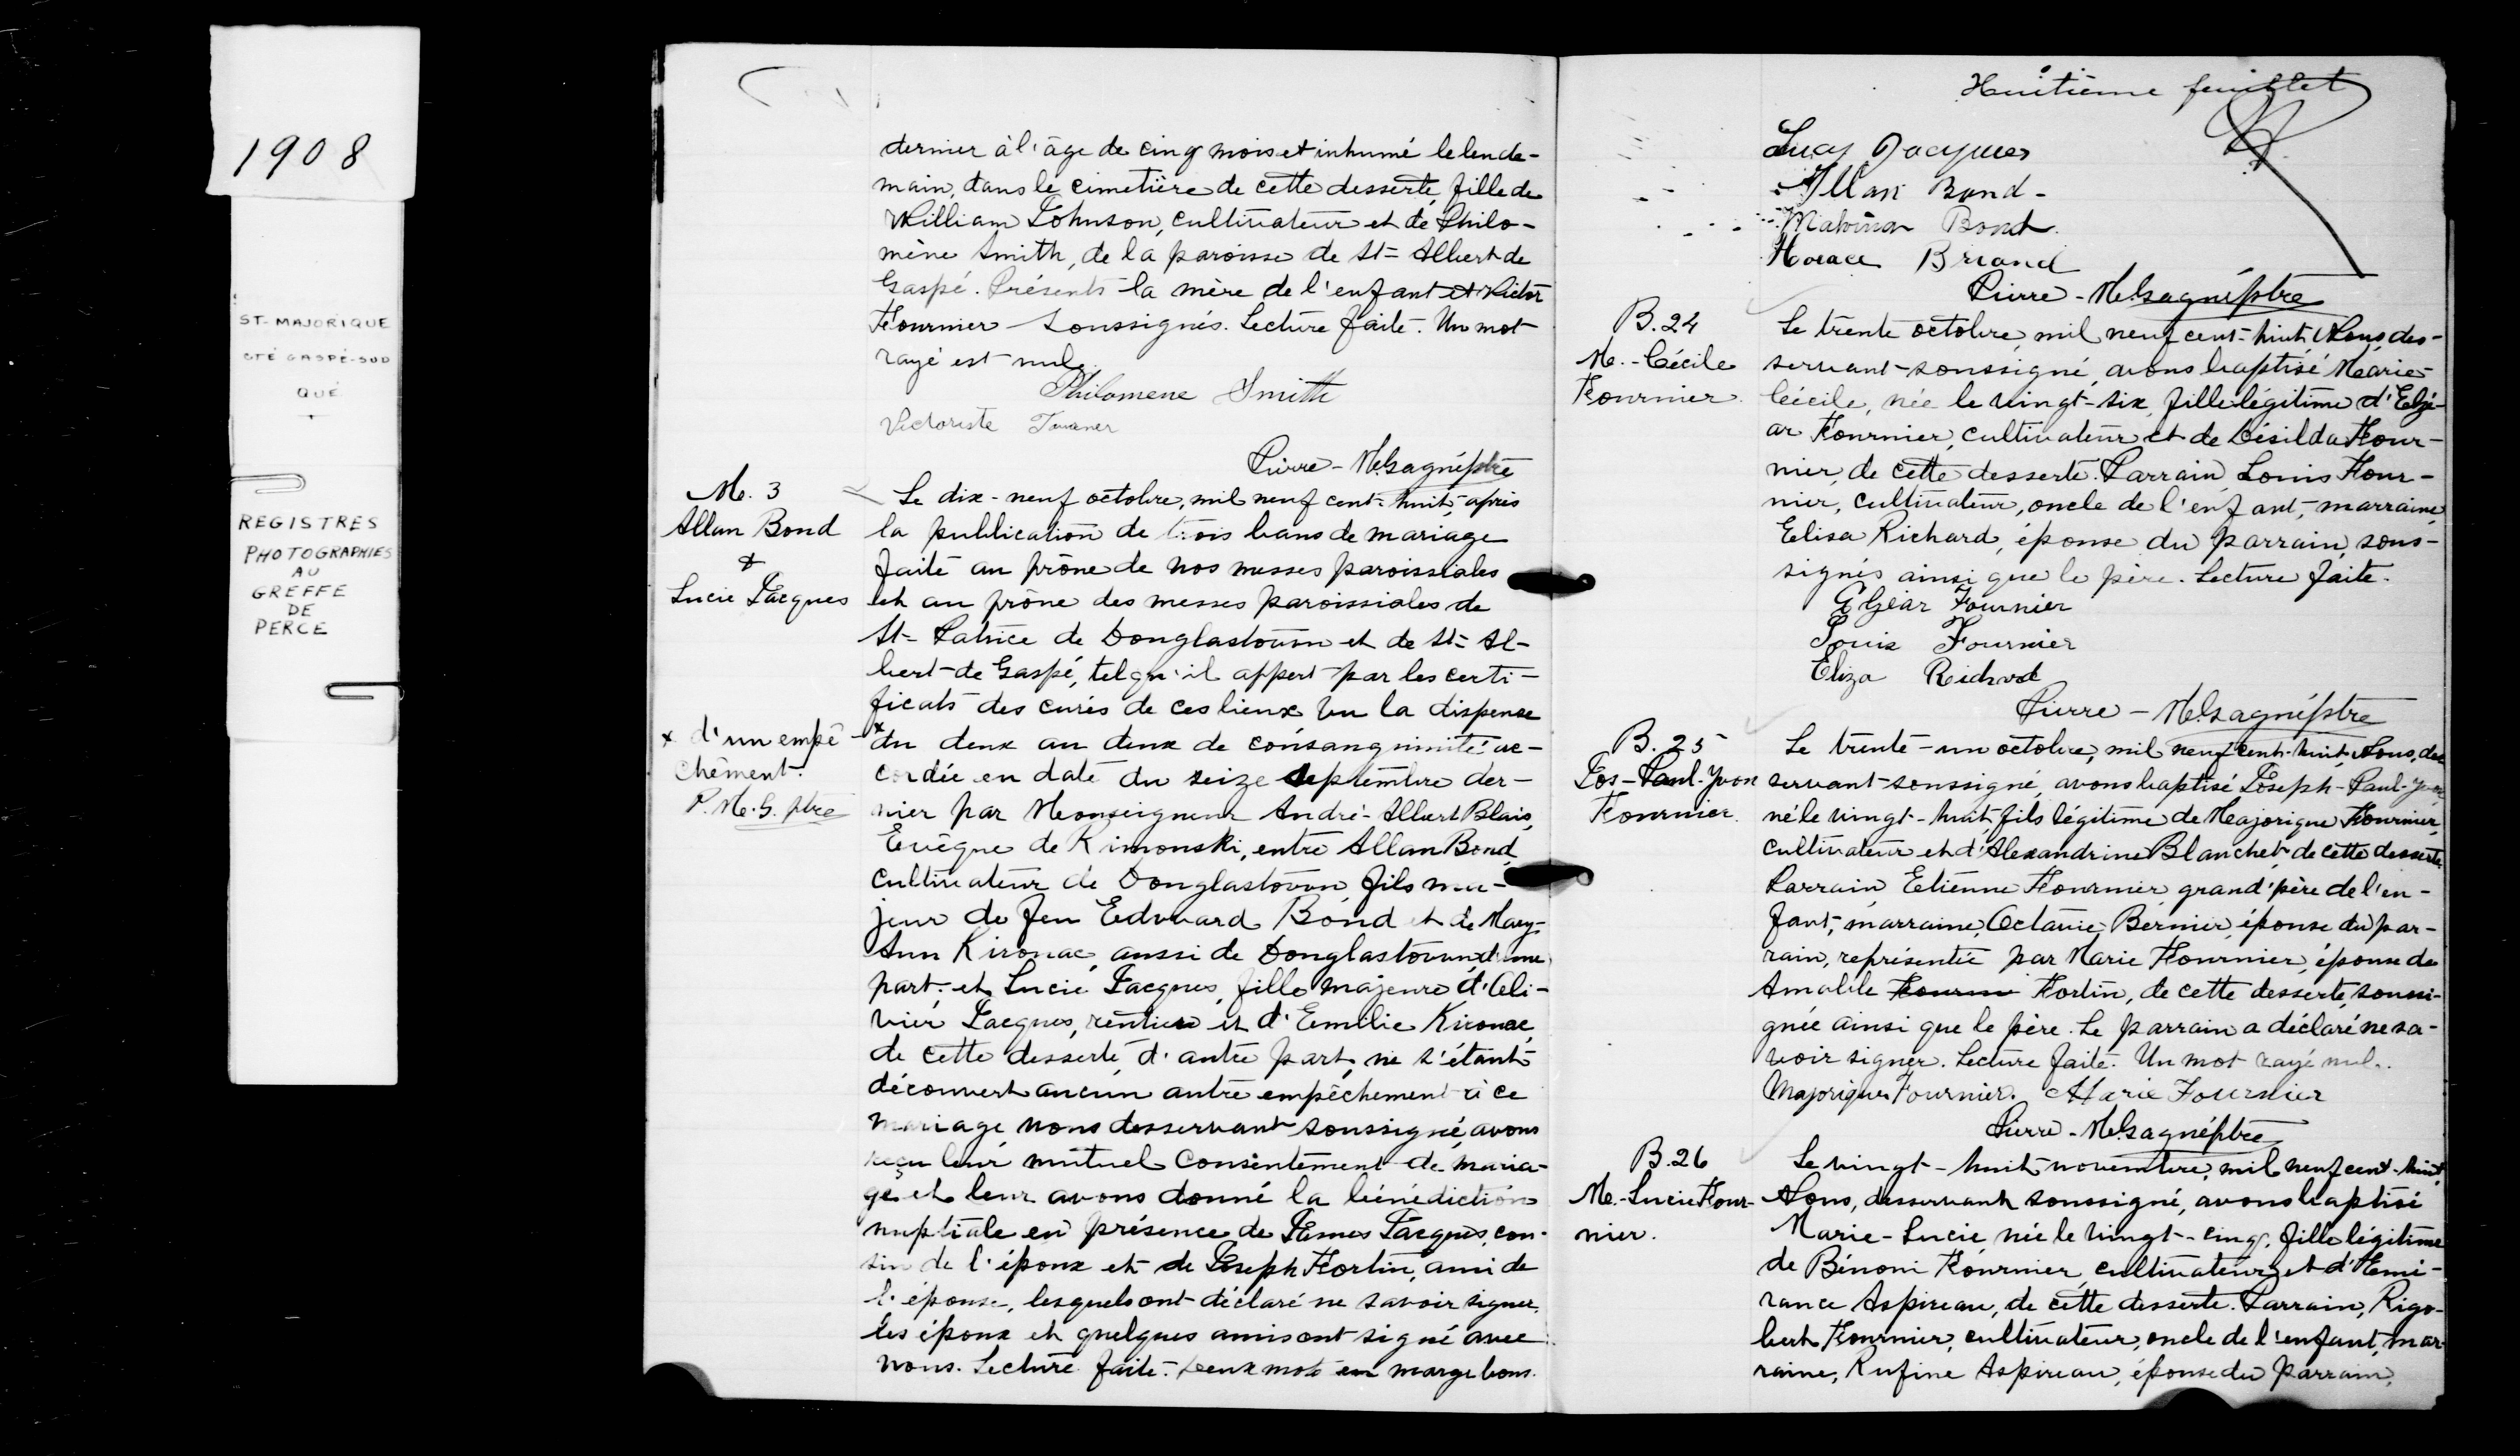 1908
ST-MAJORIQUE
CTÉ GASPÉ-SUD
QUÉ
REGISTRES
PHOTOGRAPHIES
AU
GREFFE
DE
PERCE
dernier à l'âge de cinq mois et inhumé le lende-
main, dans le cimetière de cette desserte, fille de
William Johnson, cultivateur et de Philo-
mène Smith, de la paroisse de St-Albert de
Gaspé. Présents la mère de l'enfant et Victor
Fournier soussignés. Lecture faite. Un mot
rayé est nul.
Philomene Smith
Pierre-M. Gagné ptre
M. 3
Allan Bond
&
Lucie Jacques
Le dix-neuf octobre, mil neuf cent-huit, après
la publication de trois bans de mariage
faite au prône de nos messes paroissiales
et au prône des messes paroissiales de
St-Patrice de Douglastown et de St-Al-
bert-de Gaspé, tel qu'il appert par les certi-
ficats des curés de ces lieux Vu la dispense
x d'un empê-
chement.
P.M.G. ptre
x du deux au deux de consanguinité ac-
cordée en date du seize septembre der-
nier par Monseigneur André-Albert Blais,
Evêque de Rimouski, entre Allan Bond,
cultivateur de Douglastown, fils ma-
jeur de feu Edouard Bond et de Mary-
Ann Kirouac, aussi de Douglastown, d'une
part; et Lucie Jacques, fille majeure d'Oli-
vier Jacques, rentier et d'Emilie Kirouac,
de cette desserte, d'autre part, ne s'étant
découvert aucun autre empêchement à ce
mariage, nous desservant soussigné, avons
reçu leur mutuel consentement de maria-
ge et leur avons donné la bénédiction
nuptiale en présence de James Jacques, cou-
sin de l'époux et de Joseph Fortin, ami de
l'épouse, lesquels ont déclaré ne savoir signer,
les époux et quelques amis ont signé avec
nous. Lecture faite. Deux mots en marge bons.
Huitième feuillet
Lucy Jacques
Allan Bond
Malvina Bond
Horace Briand
Pierre-M. Gagné ptre
B. 24
M.-Cécile
Fournier
Le trente octobre, mil neuf cent-huit, Nous, des-
servant-soussigné, avons baptisé Marie-
Cécile, née le vingt-six, fille légitime d'Elzé-
ar Fournier, cultivateur et de Désilda Four-
nier, de cette desserte. Parrain, Louis Four-
nier, cultivateur, oncle de l'enfant, marraine,
Elisa Richard, épouse du parrain, sous-
signés ainsi que le père. Lecture faite.
Elzéar Fournier
Louis Fournier
Eliza Richard
Pierre-M. Gagné ptre
B. 25
Jos-Paul-Yvon
Fournier.
Le trente-un octobre, mil neuf cent-huit, Nous, des
servant-soussigné, avons baptisé Joseph-Paul-Yvon
né le vingt-huit, fils légitime de Majorique Fournier,
cultivateur et d'Alexandrine Blanchet de cette desserte.
Parrain, Etienne Fournier, grand'père de l'en-
fant, marraine, Octavie Bernier, épouse du par-
rain, représentée par Marie Fournier, épouse de
Amable Fourni Fortin, de cette desserte, soussi-
gnée ainsi que le père. Le parrain a déclaré ne sa-
voir signer. Lecture faite. Un mot rayé nul.
Majorique Fournier. Marie Fournier
Pierre-M. Gagné ptre
B. 26
M.-Lucie Four-
nier.
Le vingt-huit novembre, mil neuf cent-huit,
Nous, desservant soussigné, avons baptisé
Marie-Lucie, née le vingt-cinq, fille légitime
de Bénoni Fournier, cultivateur, et d'Emé-
rance Aspireau, de cette desserte. Parrain, Rigo-
bert Fournier, cultivateur, oncle de l'enfant, mar-
raine, Rufine Aspireau, épouse du parrain,